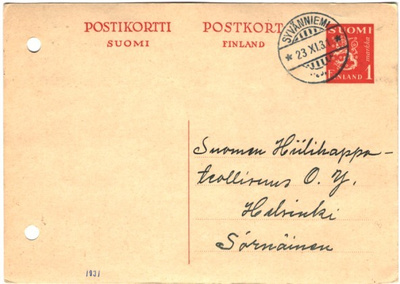 POSTIKORTTI
SUOMI
POSTKORT
FINLAND
SYVÄNNIEMI
* 23 XI.31 *
SUOMI
markka
FINLAND 1
Suomen Hiilihappo-
teollisuus O. Y.
Helsinki
Sörnäinen
1931